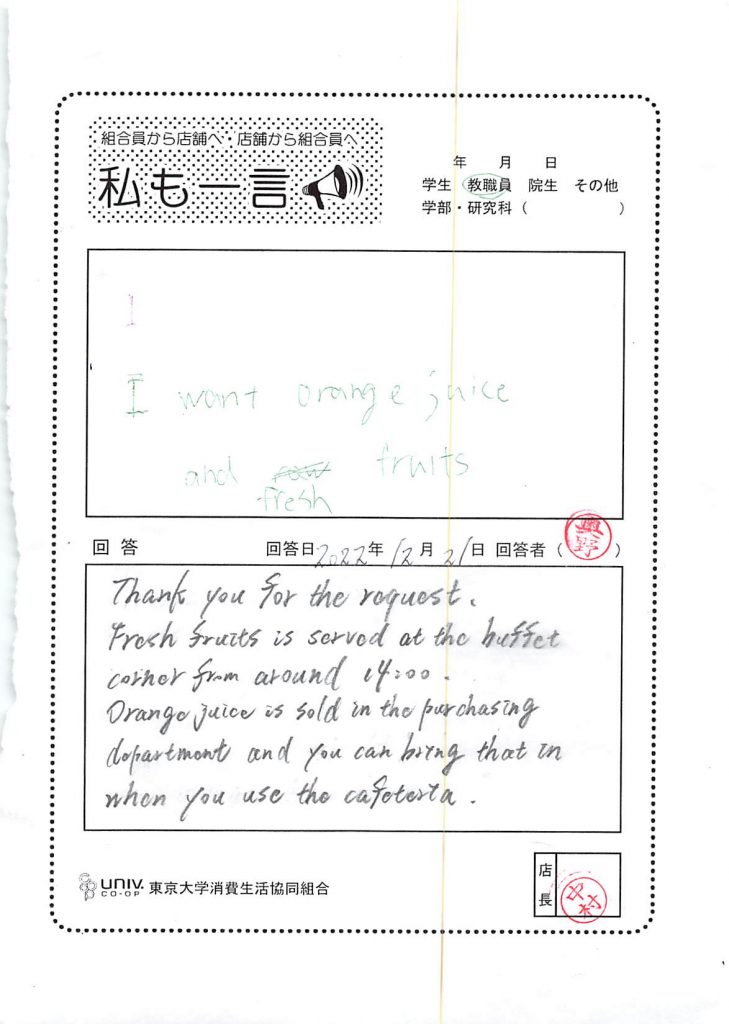 組合員から店舗へ・店舗から組合員へ
私も一言
年 月 日
学生 教職員 院生 その他
学部・研究科 ( )
I
I want orange juice
and fruits
fresh
回答 回答日 2022年 12月 21日 回答者 (奥野)
Thank you for the request.
Fresh fruits is served at the buffet
corner from around 14:00.
Orange juice is sold in the purchasing
department and you can bring that in
when you use the cafeteria.
UNIV. CO-OP 東京大学消費生活協同組合
店長 中村